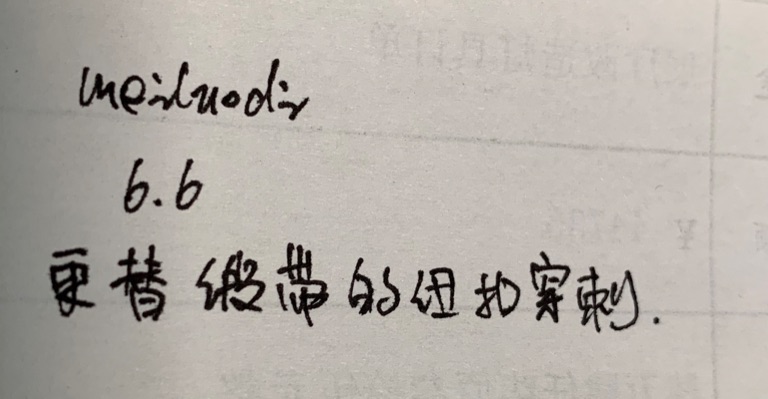 meiluodi
6.6
更替缎带的纽扣穿刺.